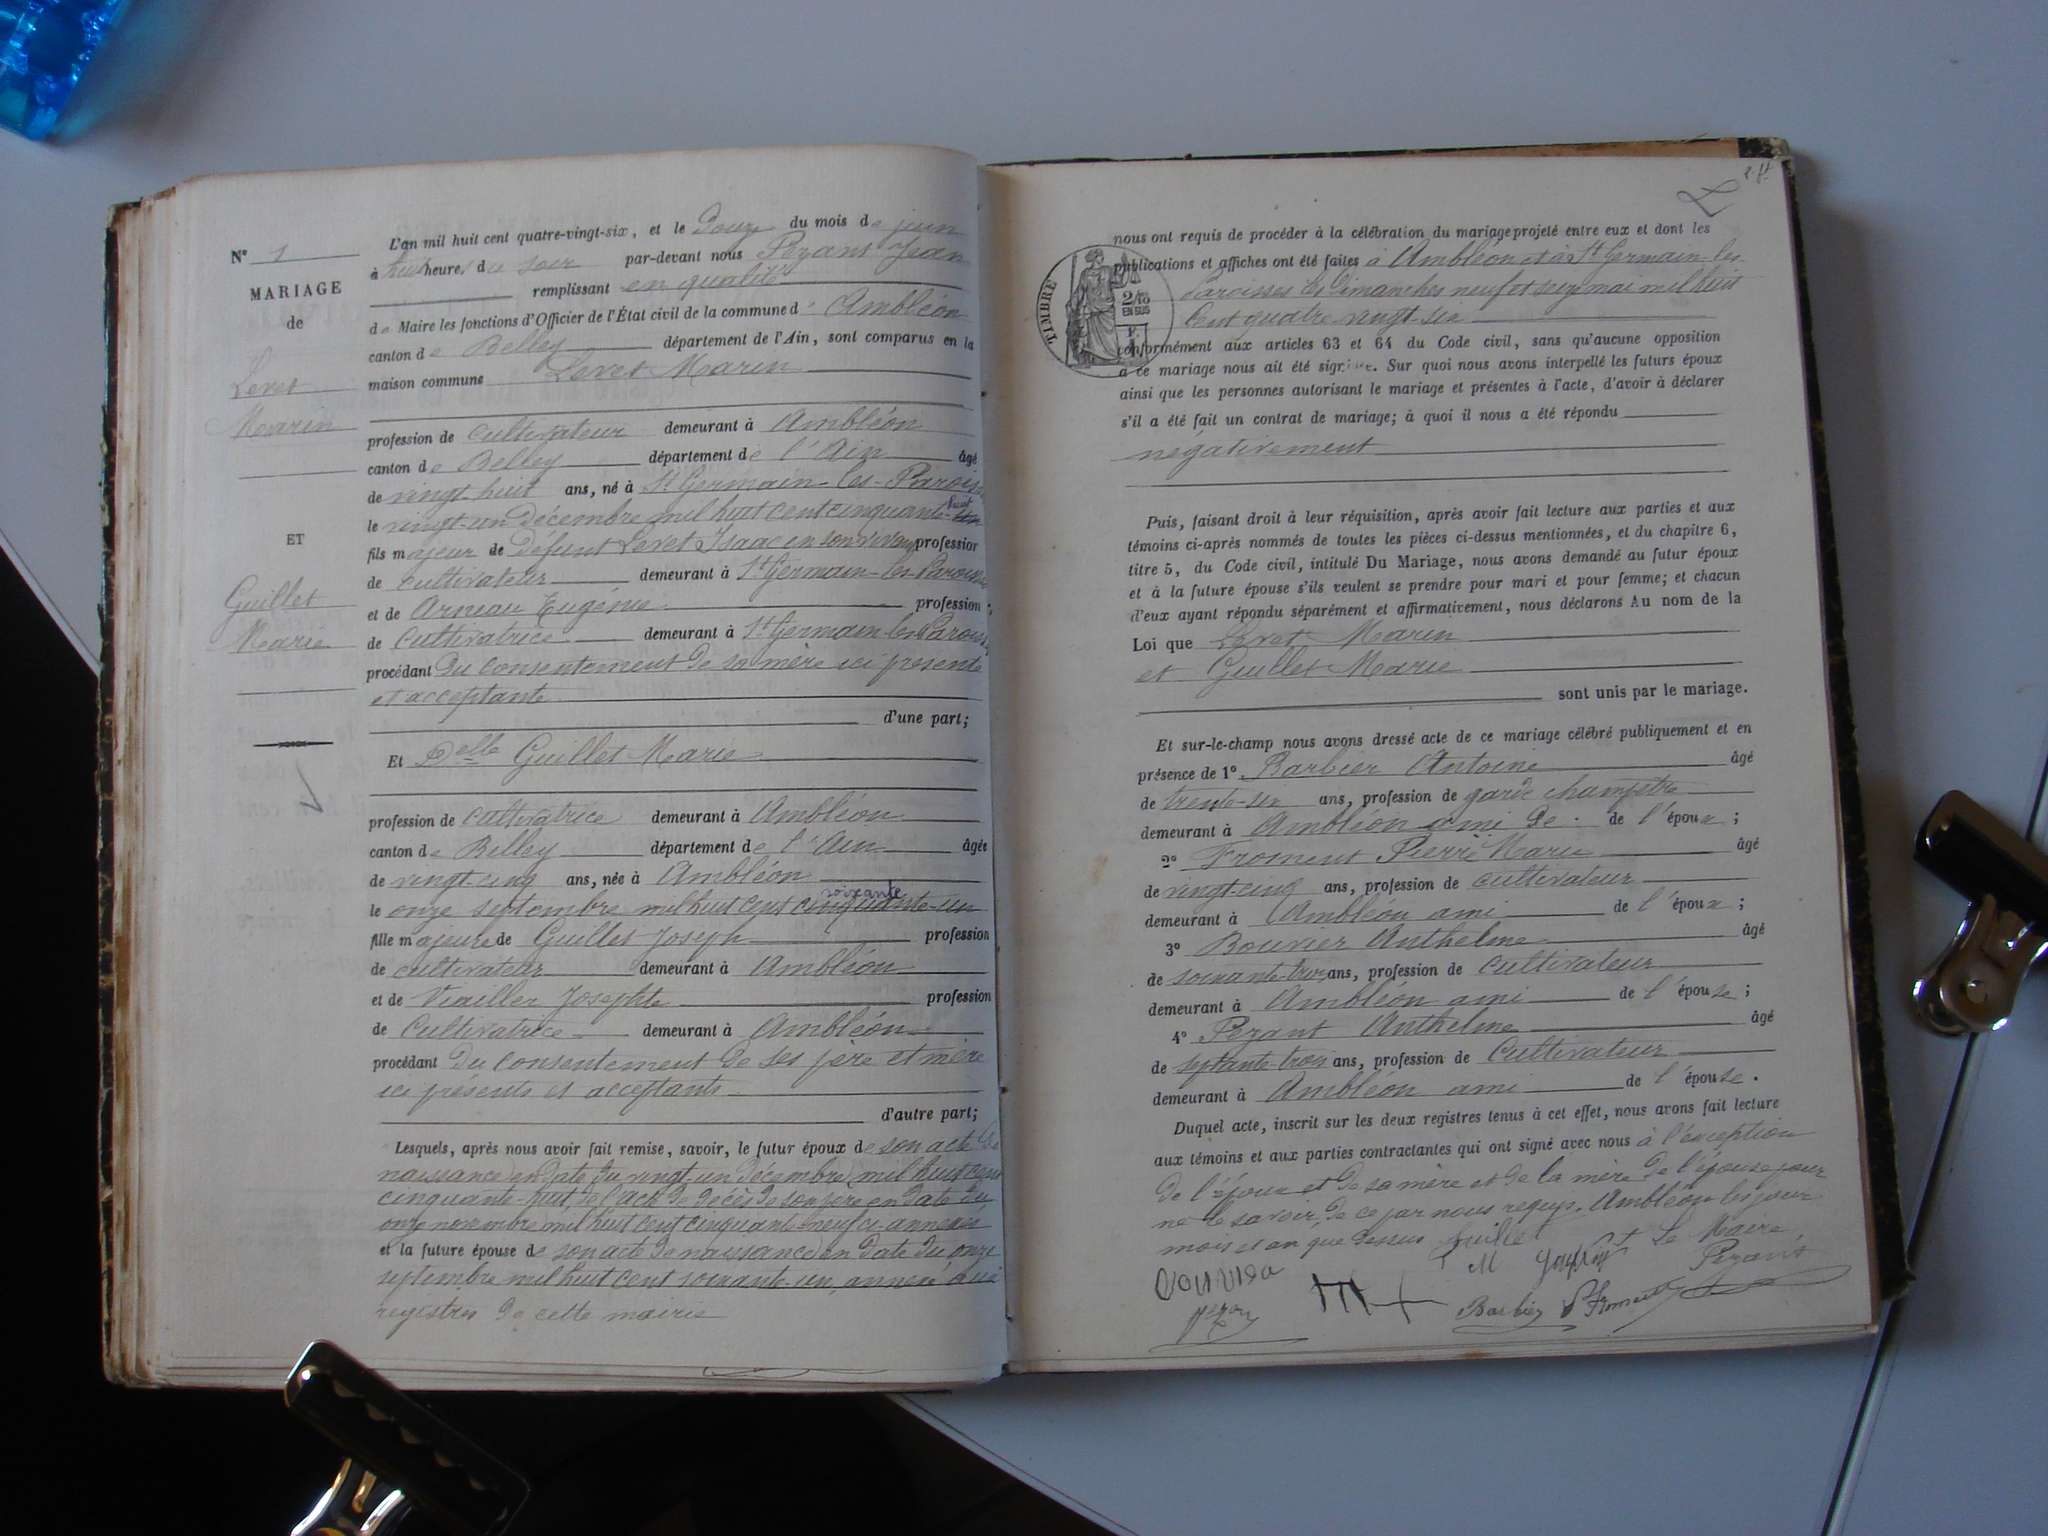 N° 1
MARIAGE
de
Levet
Marin
ET
Guillet
Marie
L'an mil huit cent quatre-vingt-six, et le douze du mois de juin
à huit heures du soir par-devant nous Pezant Jean
remplissant en qualité
de Maire les fonctions d'Officier de l'État civil de la commune d' Ambléon
canton de Belley département de l'Ain, sont comparus en la
maison commune Levet Marin
profession de cultivateur demeurant à Ambléon
canton de Belley département de l'Ain âgé
de vingt-huit ans, né à St Germain-les-Paroisses
le vingt-un décembre mil huit cent cinquante-huit
fils majeur de défunt Levet Isaac en son vivant profession
de cultivateur demeurant à St Germain-les-Paroisses
et de Arneau Eugénie profession
de cultivatrice demeurant à St Germain-les-Paroisses
procédant du consentement de sa mère ici présente
et acceptante
d'une part;
Et Delle Guillet Marie
profession de cultivatrice demeurant à Ambléon
canton de Belley département de l'Ain âgée
de vingt-cinq ans, née à Ambléon
soixante
le onze septembre mil huit cent cinquante-un
fille majeure de Guillet Joseph profession
de cultivateur demeurant à Ambléon
et de Viailler Josephte profession
de cultivatrice demeurant à Ambléon
procédant du consentement de ses père et mère
ici présents et acceptants
d'autre part;
Lesquels, après nous avoir fait remise, savoir, le futur époux de son acte de
naissance en date du vingt-un décembre mil huit cent
cinquante-huit, de l'acte de décès de son père en date du
onze novembre mil huit cent cinquante neuf ci-annexés
et la future épouse de son acte de naissance en date du onze
septembre mil huit cent soixante-un, annexé aux
registres de cette mairie
nous ont requis de procéder à la célébration du mariage projeté entre eux et dont les
publications et affiches ont été faites à Ambléon et à St Germain-les-
Paroisses les dimanches neuf et seize mai mil huit
cent quatre vingt-six
TIMBRE
2/10
EN SUS
conformément aux articles 63 et 64 du Code civil, sans qu'aucune opposition
à ce mariage nous ait été signifiée. Sur quoi nous avons interpellé les futurs époux
ainsi que les personnes autorisant le mariage et présentes à l'acte, d'avoir à déclarer
s'il a été fait un contrat de mariage; à quoi il nous a été répondu
négativement
Puis, faisant droit à leur réquisition, après avoir fait lecture aux parties et aux
témoins ci-après nommés de toutes les pièces ci-dessus mentionnées, et du chapitre 6,
titre 5, du Code civil, intitulé Du Mariage, nous avons demandé au futur époux
et à la future épouse s'ils veulent se prendre pour mari et pour femme; et chacun
d'eux ayant répondu séparément et affirmativement, nous déclarons Au nom de la
Loi que Levet Marin
et Guillet Marie
sont unis par le mariage.
Et sur-le-champ nous avons dressé acte de ce mariage célébré publiquement et en
présence de 1° Barbier Antoine âgé
de trente-un ans, profession de garde champêtre
demeurant à Ambléon ami de de l'époux;
2° Froment Pierre Marie âgé
de vingt-cinq ans, profession de cultivateur
demeurant à Ambléon ami de l'époux;
3° Bouvier Anthelme âgé
de soixante-trois ans, profession de cultivateur
demeurant à Ambléon ami de l'épouse;
4° Pezant Anthelme âgé
de septante-trois ans, profession de cultivateur
demeurant à Ambléon ami de l'épouse.
Duquel acte, inscrit sur les deux registres tenus à cet effet, nous avons fait lecture
aux témoins et aux parties contractantes qui ont signé avec nous à l'exception
de l'époux et de sa mère et de la mère de l'épouse pour
ne le savoir, de ce par nous requis. Ambléon les jour
mois et an que dessus Guillet Le Maire
M Joseph Pezant
Bouvier
Barbier P Froment